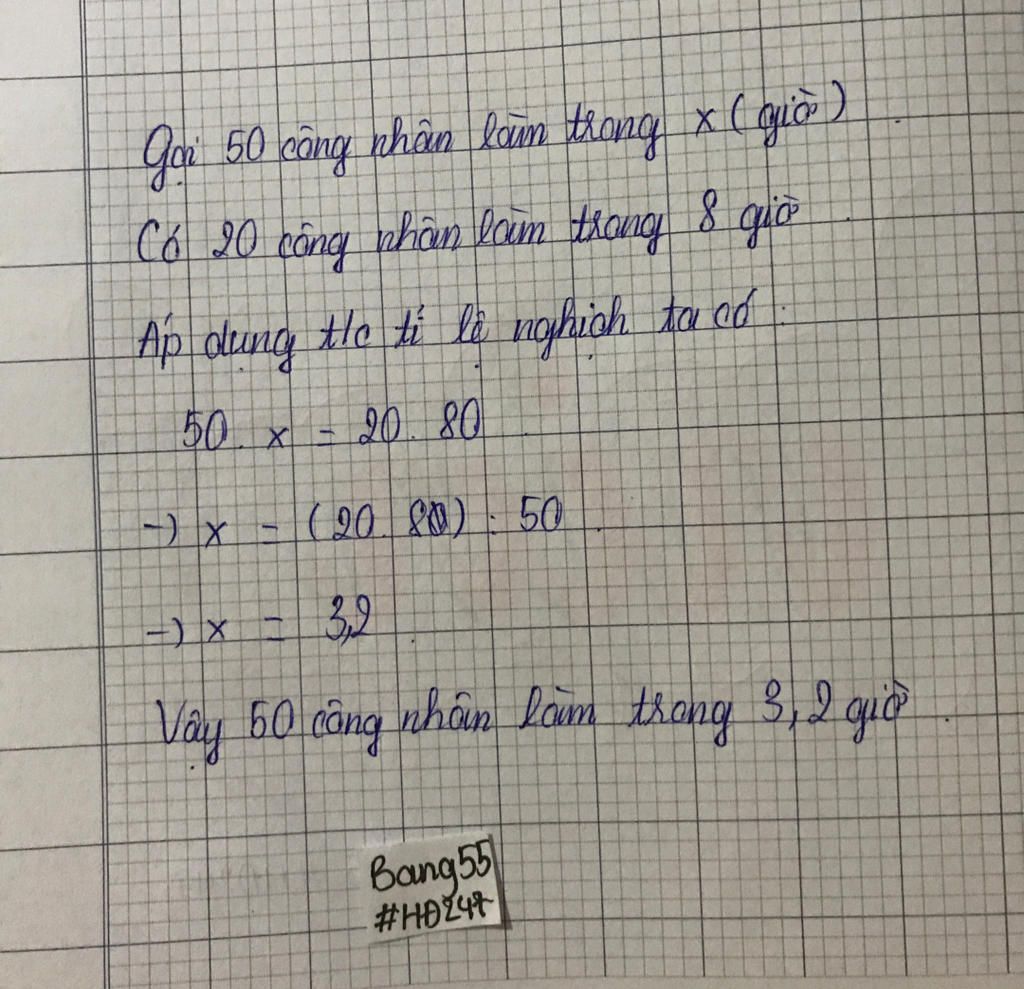 Gọi 50 công nhân làm trong x (giờ)
Có 20 công nhân làm trong 8 giờ
Áp dụng t/c tỉ lệ nghịch ta có :
50 . x = 20 . 80
-) x = (20 . 80) : 50
-) x = 3,2
Vậy 50 công nhân làm trong 3,2 giờ .
Bang55
#HĐ247